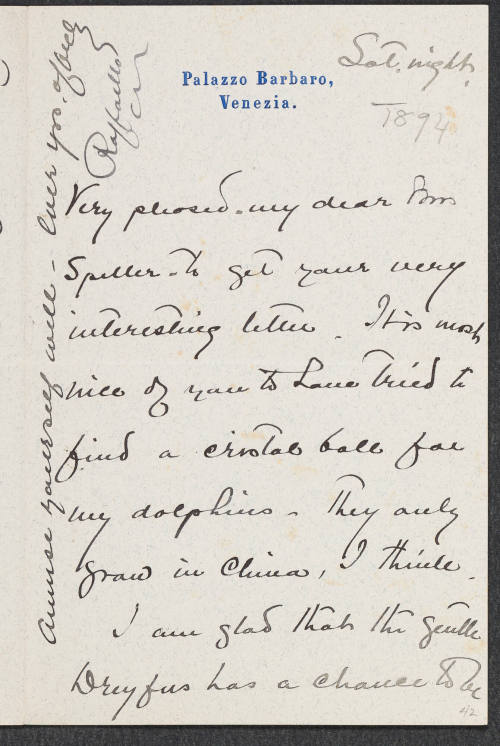 Palazzo Barbaro,
Venezia.
Sat. night.
1894
Very pleased - my dear
Speller - to get your very
interesting letter. It is most
nice of you to have tried to
find a cristal ball for
my dolphins - They only
grow in China, I think.
I am glad that the gentle
Dreyfus has a chance to be
42
Amuse yourself well - Ever yrs. affec
Raffaello